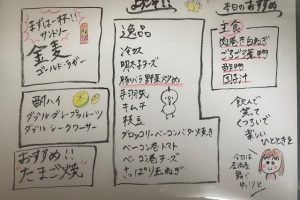 まずは一杯!!
サントリー
金麦
ゴールド・ラガー
酎ハイ
ダブルグレープフルーツ
ダブルシークワーサー
おすすめ!!
たまご焼
逸品
冷奴
明太子チーズ
豚バラ野菜炒め
手羽焼
キムチ
枝豆
ブロッコリーベーコンバター焼き
ベーコン巻トマト
ベーコン巻チーズ
さっぱり玉ねぎ
本日のおすすめ
主食
肉巻き白ねぎ
酢物
飲んで
笑って
くつろいで
楽しい
ひとときを
今日は
居酒屋